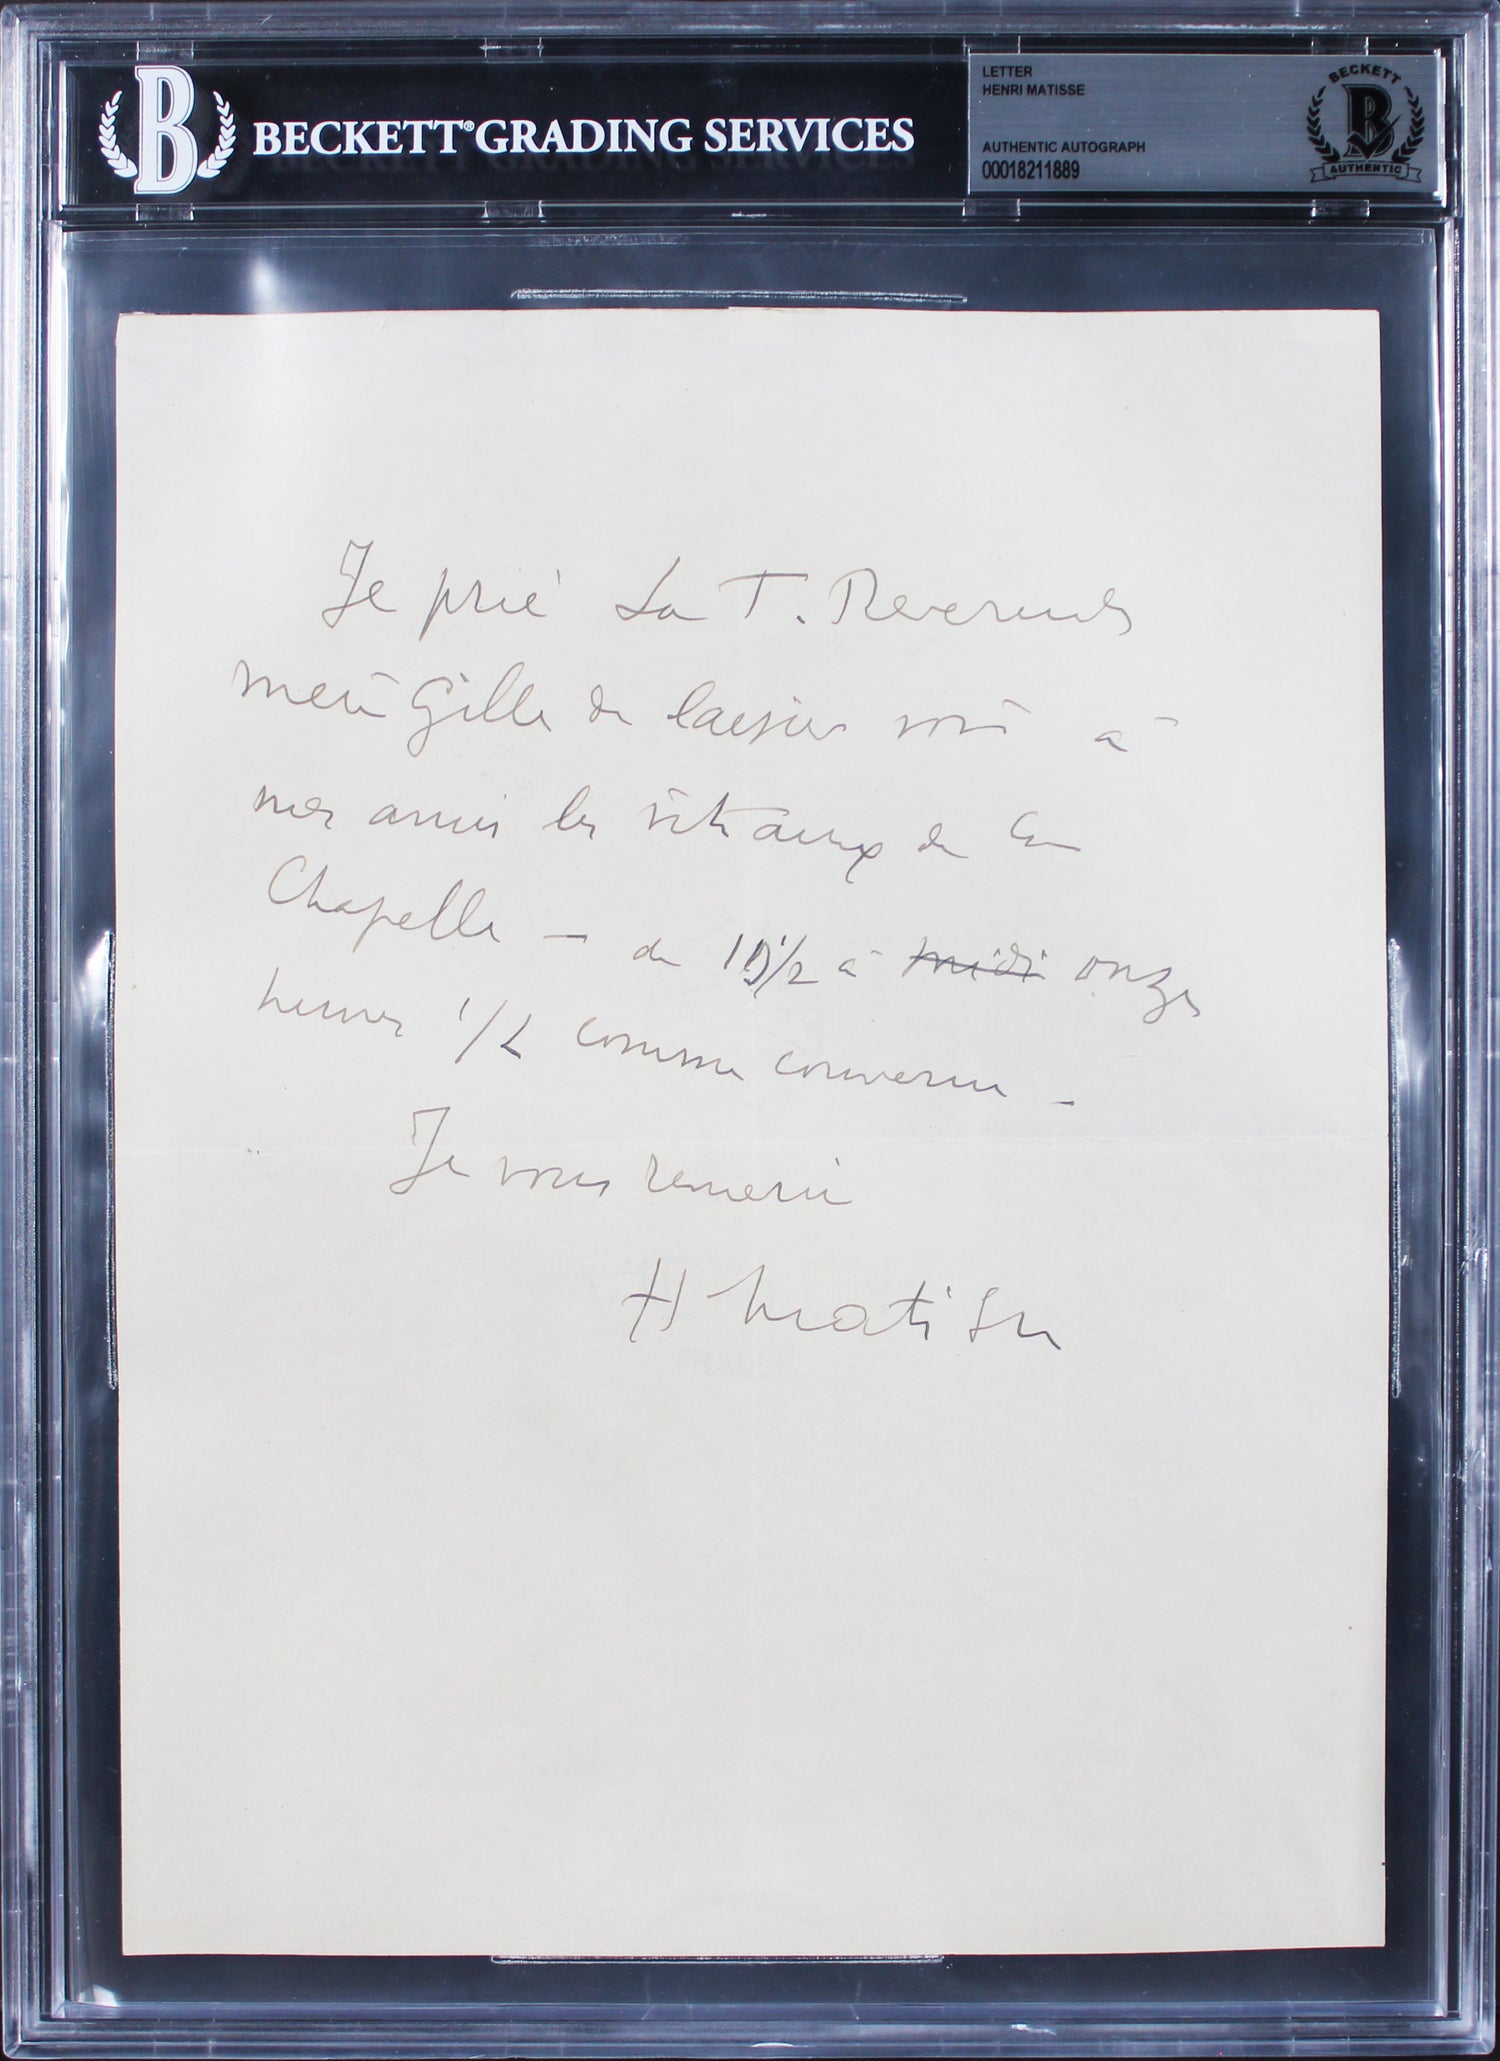 B BECKETT® GRADING SERVICES
LETTER
HENRI MATISSE
AUTHENTIC AUTOGRAPH
00018211889
BECKETT
B
AUTHENTIC
Je prie La T. Reverende
mere Gille de laisser voir à
mes amis les vitraux de la
Chapelle — de 10 1/2 à midi onze
heures 1/2 comme convenu —
Je vous remercie
H Matisse